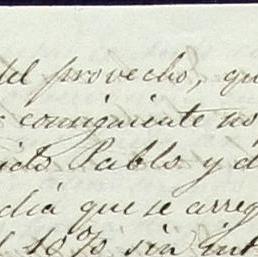 del provecho, qu
consiguiente no
Pablo y d
dia que se arreg
10% sin int